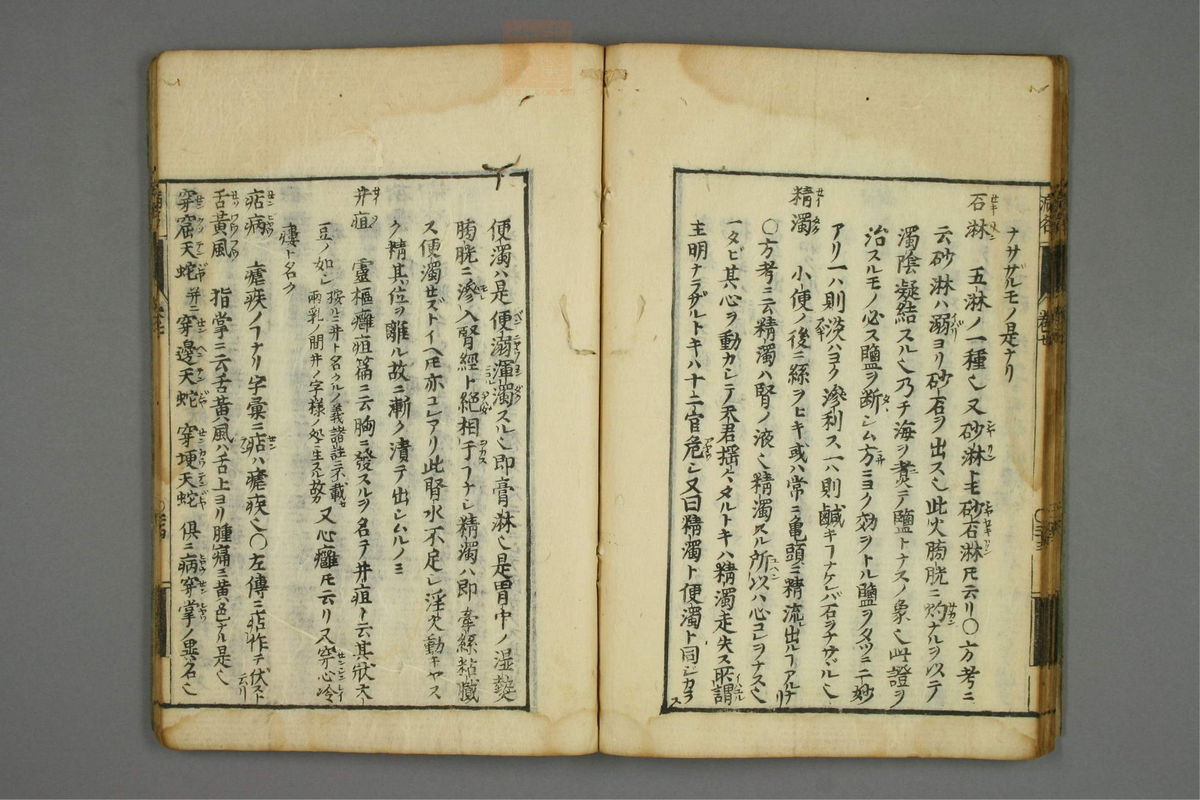 ナサザルモノ是ナリ
石淋 五淋ノ一種也又砂淋トモ砂石淋トモ云リ〇方考ニ
云砂淋ハ溺ヨリ砂石ヲ出ス也此火胞胱ニ灼ナルヲ以テ
濁陰凝結スル也乃チ海ヲ煑テ鹽トナスノ象也此證ヲ
治スルモノ必ス鹽ヲ断シム方ニヨク効ヲトル鹽ヲタツニ二妙
アリ一ハ則淡ハヨク滲利ス一ハ則鹹キヿナケレバ石ヲナサヾル也
精濁 小便ノ後ニ絲ヲヒキ或ハ常ニ亀頭ニ精流出ルヿアルナリ
〇方考ニ云精濁ハ腎ノ液也精濁スル所以ハ心コレヲナス也
一タビ其心ヲ動カシテ天君揺タルトキハ精濁走失ス所謂
主明ナラザルトキハ十二官危シ又曰精濁ト便濁ト同シカラス
便濁ハ是便溺渾濁スル也即膏淋也是胃中ノ湿熱
胞胱ニ滲入腎經ト絶相干ヿナシ精濁ハ即牽絲粘膩
ス便濁セズトイヘトモ亦コレアリ此腎水不足シ淫火動キヤス
ク精其位ヲ離ル故ニ漸ク潰テ出シムルノミ
井疽 靈樞癰疽篇ニ云胸ニ發スルヲ名テ井疽ト云其状大
豆ノ如シ 按ルニ井ト名クルノ義諸註ニ不載セ 兩乳ノ間井ノ字様ノ処ニ生スル故カ 又心癰トモ云リ又穿心冷
瘻ト名ク
痁病 瘧疾ノヿナリ字彙ニ痁ハ瘧疾也〇左傳ニ痁作テ伏スト云リ
舌黄風 指掌ニ云舌黄風ハ舌上ヨリ腫痛ミ黄色ナル是也
穿窟天蛇 并ニ穿邊天蛇 穿埂天蛇 俱ニ病穿掌ノ異名也